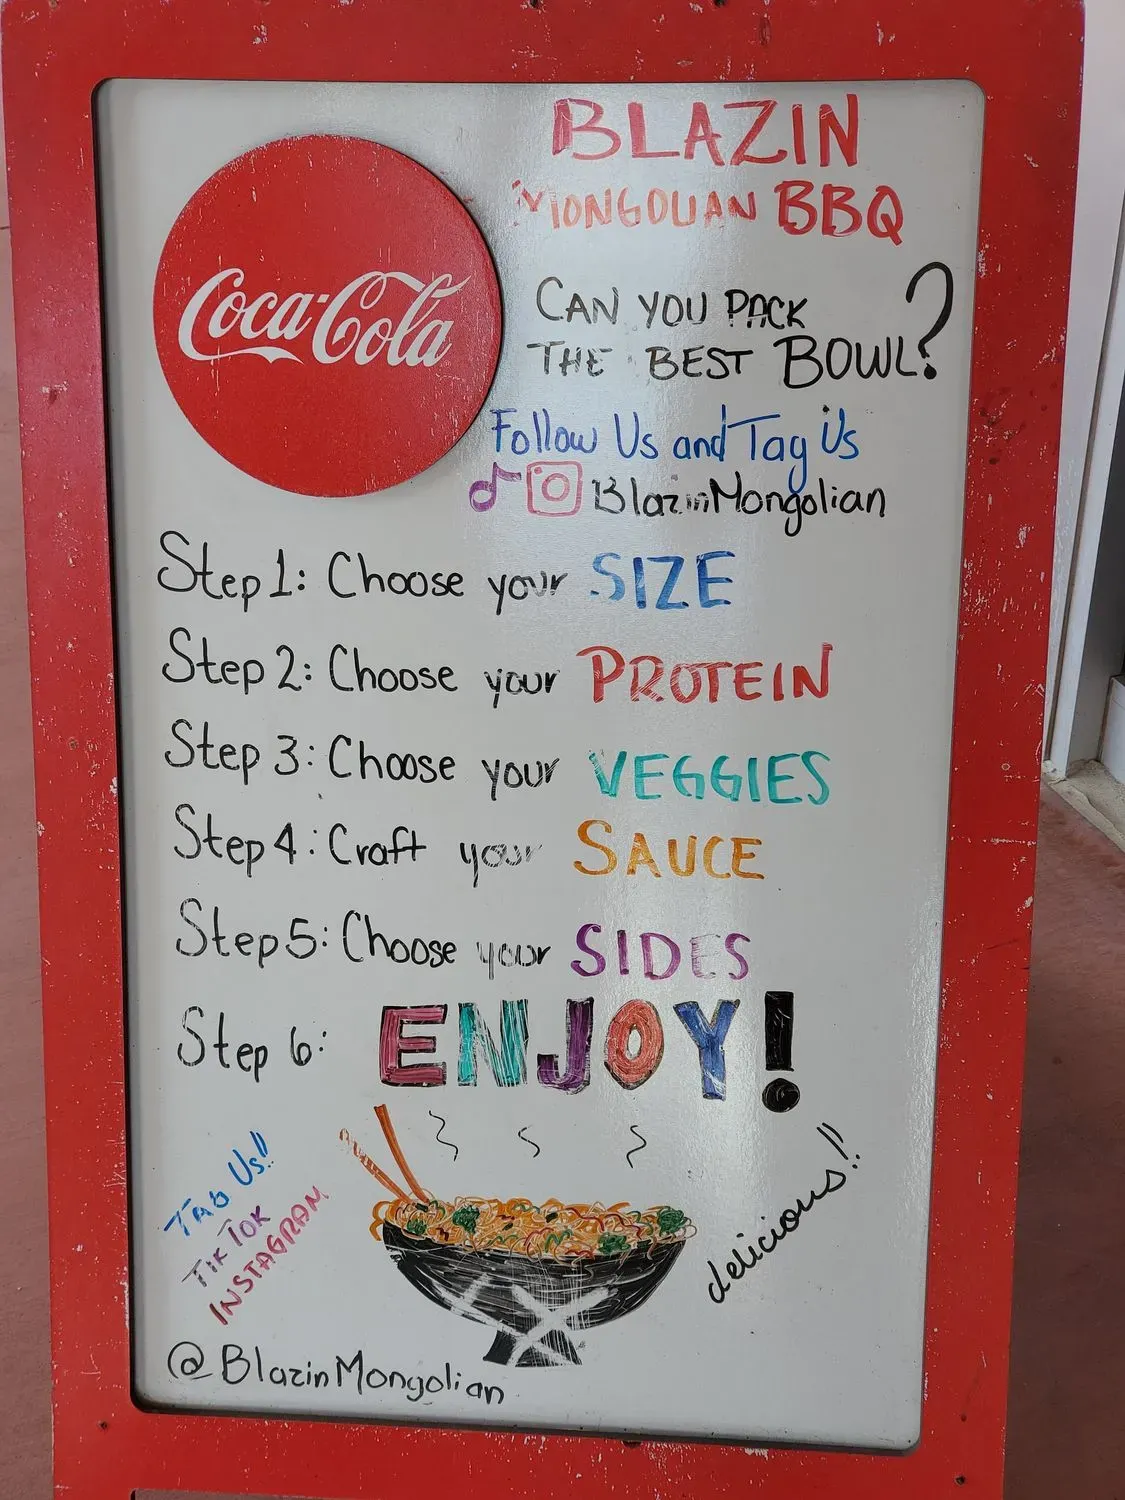 Coca-Cola
BLAZIN
MONGOLIAN BBQ
CAN YOU PACK
THE BEST BOWL?
Follow Us and Tag Us
BlazinMongolian
Step 1: Choose your SIZE
Step 2: Choose your PROTEIN
Step 3: Choose your VEGGIES
Step 4: Craft your SAUCE
Step 5: Choose your SIDES
Step 6: ENJOY!
TAG Us!!
TIKTOK
INSTAGRAM
delicious!!
@BlazinMongolian